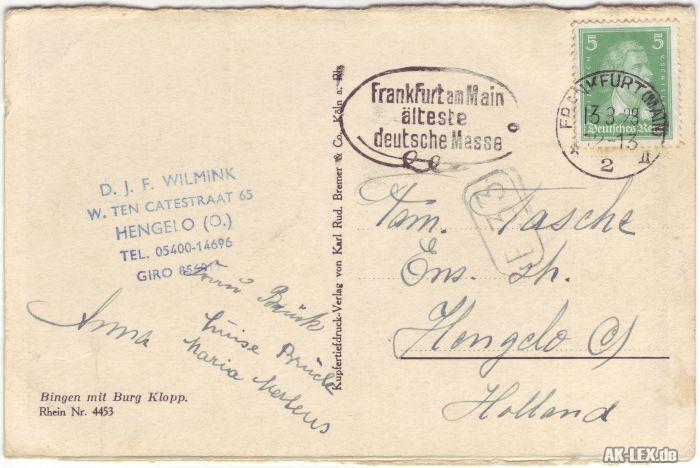 D. J. F. WILMINK
W. TEN CATESTRAAT 65
HENGELO (O.)
TEL. 05400-14696
GIRO
Frau Brück
Luise Brück
Maria Mertens
Anna
Bingen mit Burg Klopp.
Rhein Nr. 4453
Kupfertiefdruck-Verlag von Karl Rud. Bremer & Co., Köln a. Rh.
Frankfurt am Main
älteste
deutsche Messe
5 5
Deutsches Reich
FRANKFURT (MAIN)
13.3.28
12-13
* 2
Fam. Tasche
Ens. Zn.
Hengelo O/
Holland
AK-LEX.de